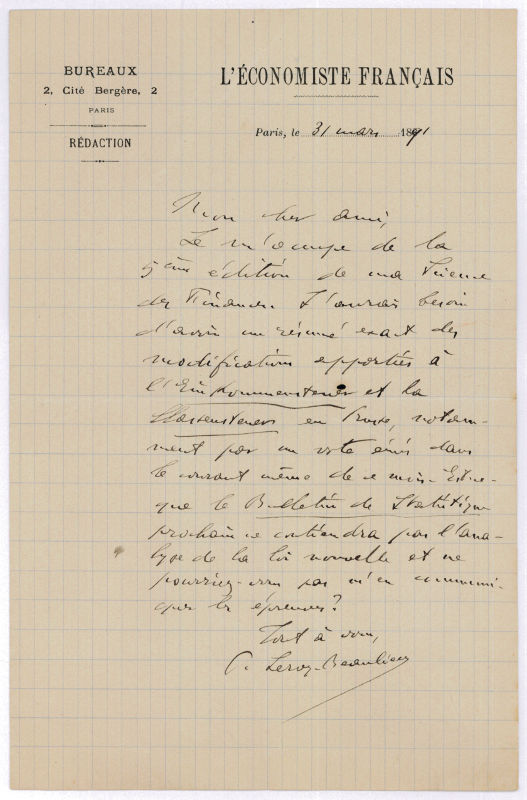 BUREAUX
2, Cité Bergère, 2
PARIS
RÉDACTION
L'ÉCONOMISTE FRANÇAIS
Paris, le 31 mars 1891
Mon cher ami,
Je m'occupe de la
5ème édition de ma Science
des Finances. J'aurais besoin
d'avoir un résumé exact des
modifications apportées à
l'Einkommensteuer et la
Classensteuer en Prusse, notam-
ment par un vote émis dans
le courant même de ce mois. Est-ce
que le Bulletin de Statistique
prochain ne contiendra pas l'ana-
lyse de la loi nouvelle et ne
pourriez-vous pas m'en communi-
quer les épreuves?
Tout à vous,
P. Leroy-Beaulieu